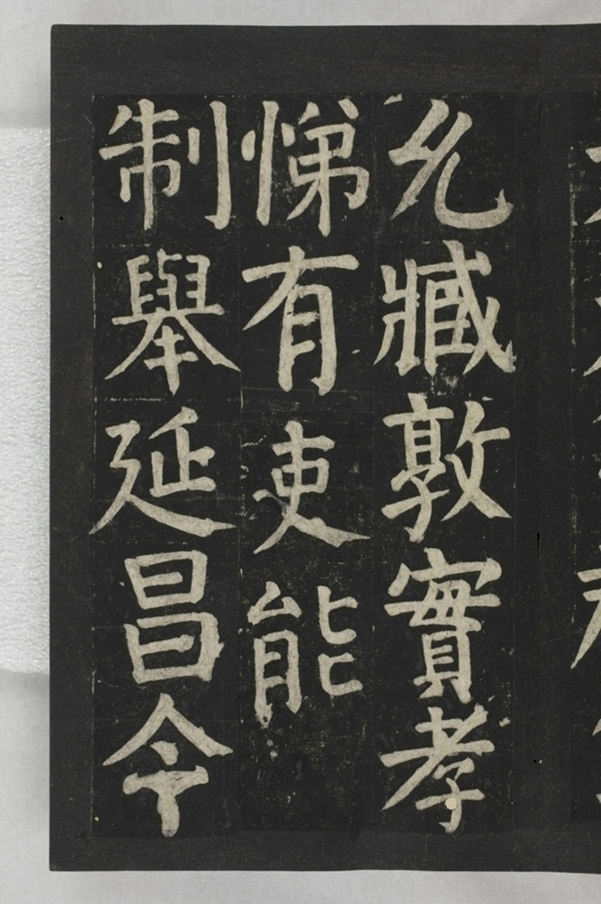 允臧敦實孝
悌有吏能
制舉延昌令